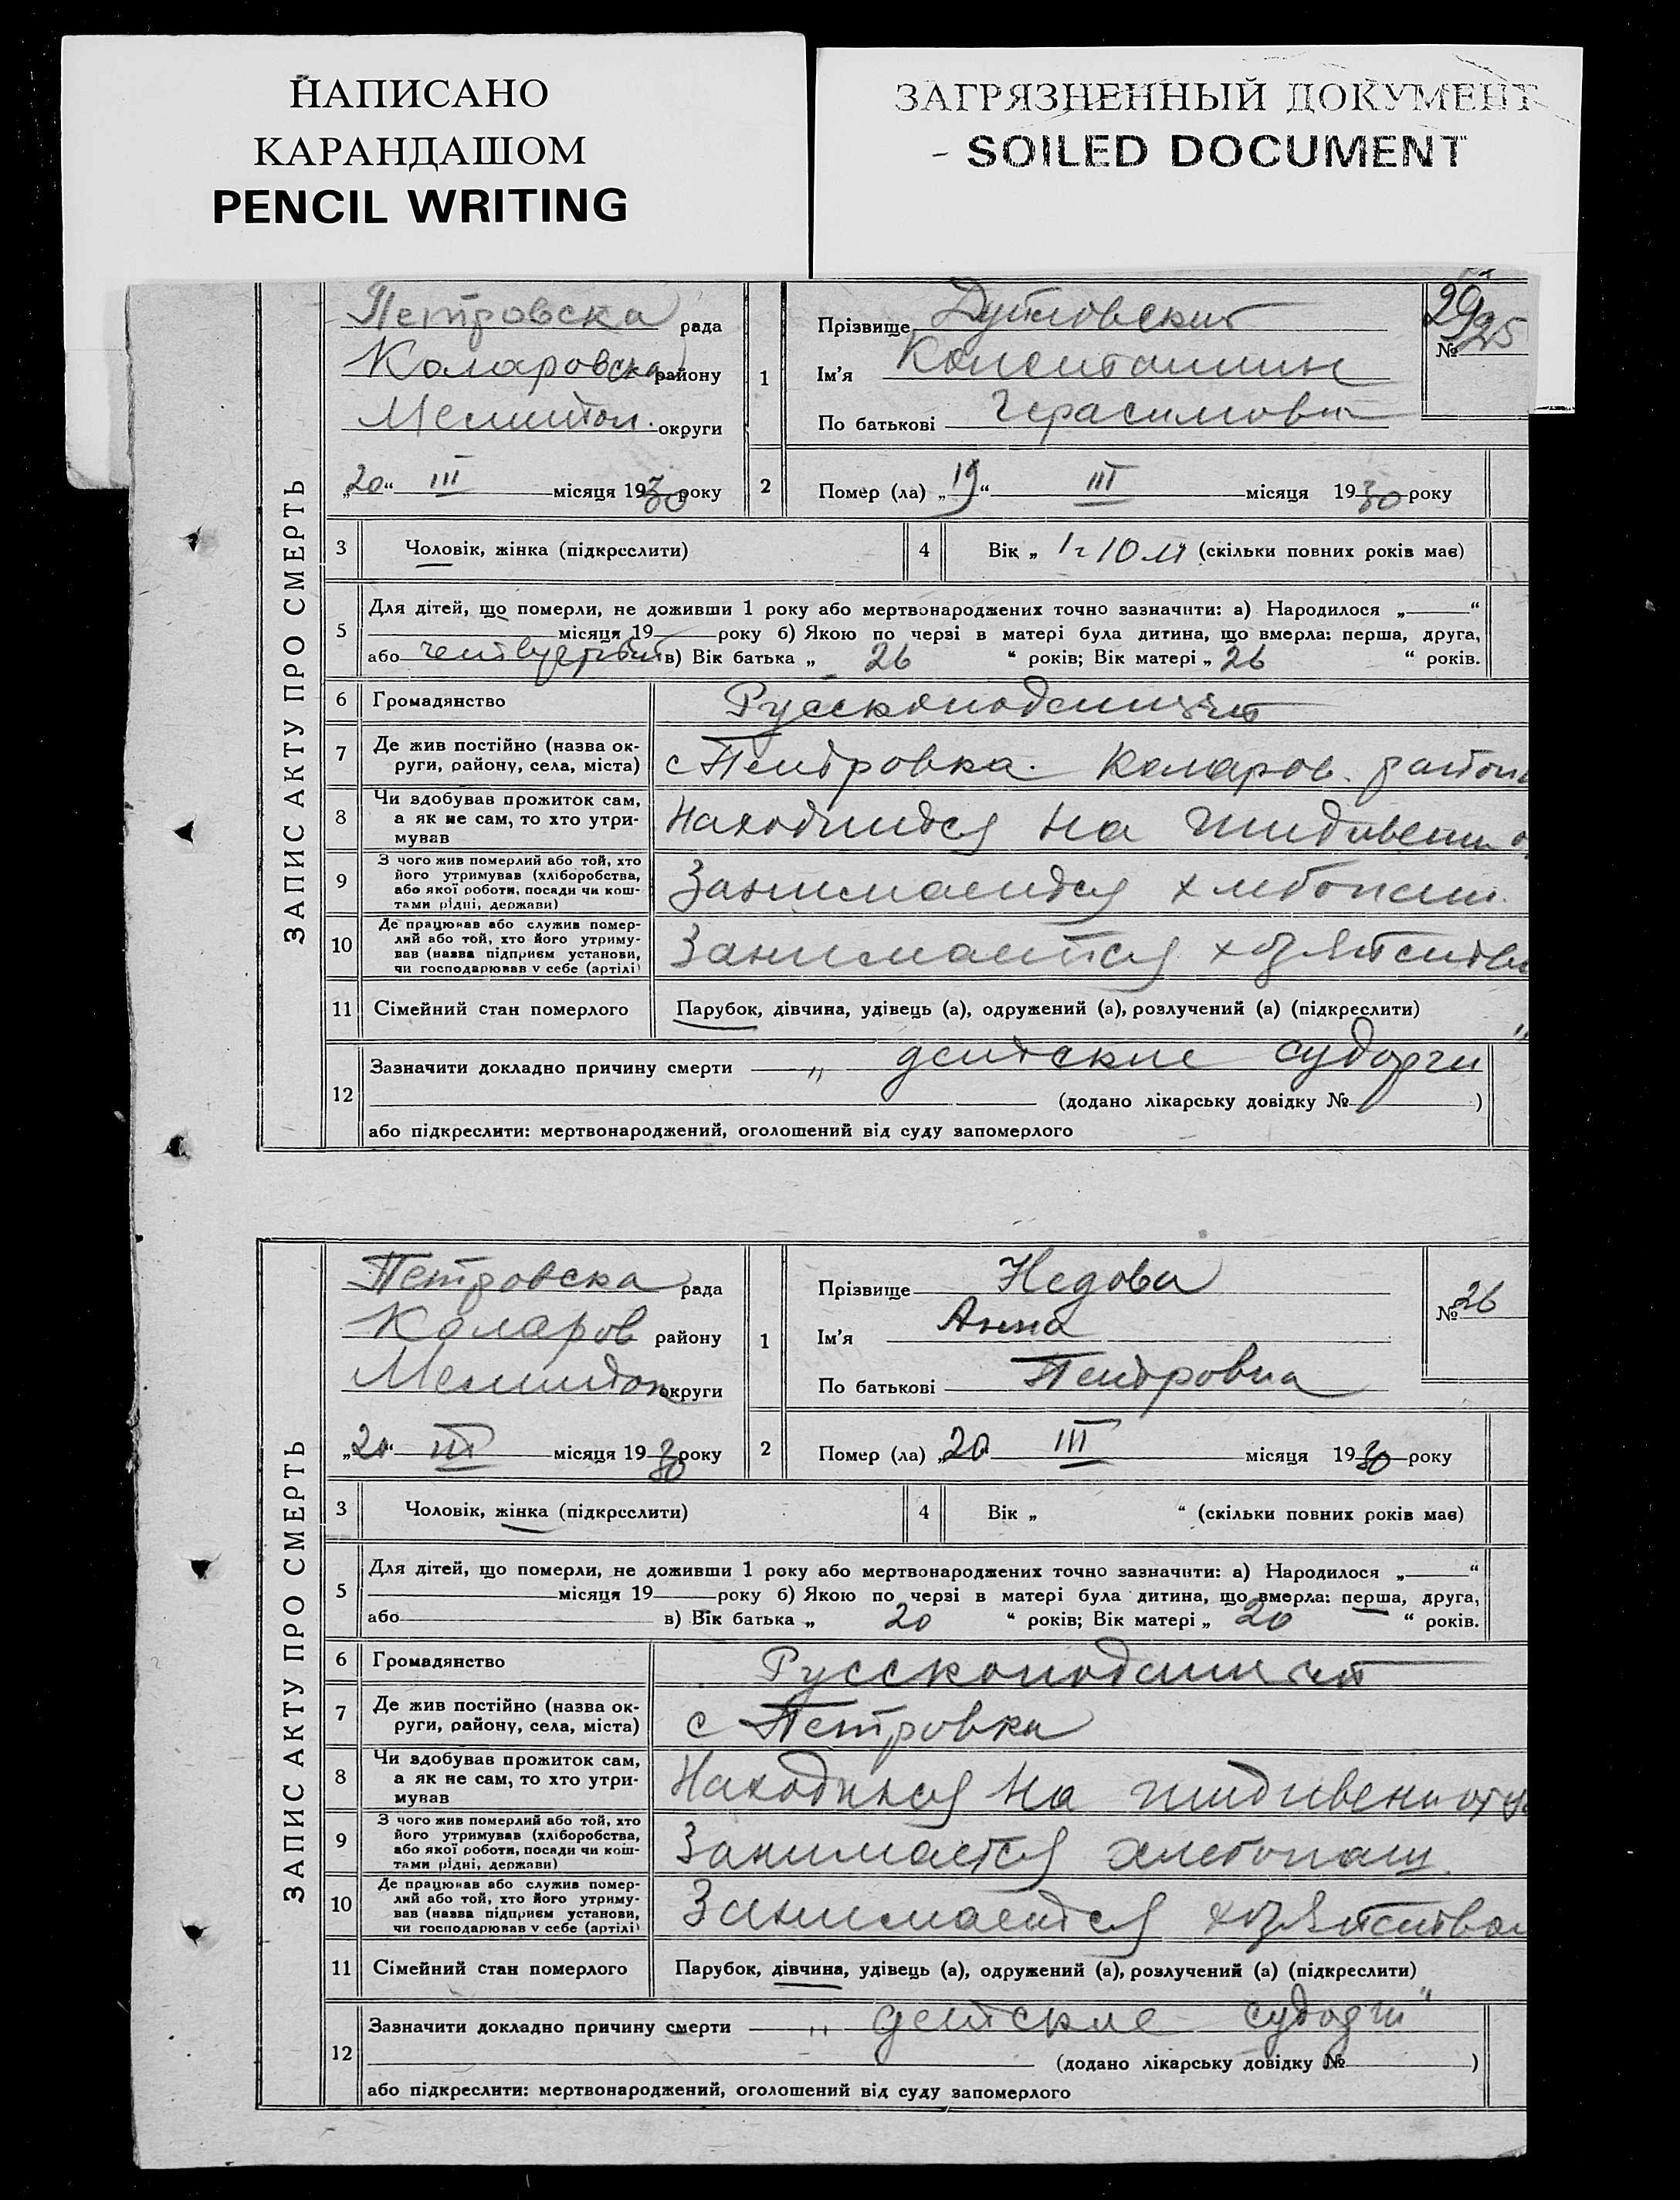 НАПИСАНО
КАРАНДАШОМ
PENCIL WRITING
ЗАГРЯЗНЕННЫЙ ДОКУМЕНТ
- SOILED DOCUMENT
ЗАПИС АКТУ ПРО СМЕРТЬ
Петровска рада
Коларовска району
Мелитоп. округи
„20“ III місяця 1930 року
1
Прізвище
Ім'я Константин
По батькові Герасимович
№ 25
2
Помер (ла) „19“ III місяця 1930 року
3 Чоловік, жінка (підкреслити)
4 Вік „ 1 г 10 м “ (скільки повних років має)
5
Для дітей, що померли, не доживши 1 року або мертвонароджених точно зазначити: а) Народилося „ “
місяця 19 року б) Якою по черзі в матері була дитина, що вмерла: перша, друга,
або четвертый в) Вік батька „ 26 “ років; Вік матері „ 26 “ років.
6 Громадянство
7 Де жив постійно (назва ок-
руги, району, села, міста)
с Петровка. Коларов. район
8 Чи здобував прожиток сам,
а як не сам, то хто утри-
мував
Находится на
9 З чого жив померлий або той, хто
його утримував (хліборобства,
або якої роботи, посади чи кош-
тами рідні, держави)
Занимается хлебопаш.
10 Де працював або служив помер-
лий або той, хто його утриму-
вав (назва підприєм установи,
чи господарював у себе (артілі)
Занимается
11 Сімейний стан померлого
Парубок, дівчина, удівець (а), одружений (а), розлучений (а) (підкреслити)
12
Зазначити докладно причину смерти „ детские судорги "
(додано лікарську довідку № )
або підкреслити: мертвонароджений, оголошений від суду запомерлого
ЗАПИС АКТУ ПРО СМЕРТЬ
Петровска рада
Коларов району
Мелитоп округи
„20“ III місяця 1930 року
1
Прізвище Недова
Ім'я Анна
По батькові Петровна
№ 26
2
Помер (ла) „20 III місяця 1930 року
3 Чоловік, жінка (підкреслити)
4 Вік „ “ (скільки повних років має)
5
Для дітей, що померли, не доживши 1 року або мертвонароджених точно зазначити: а) Народилося „ “
місяця 19 року б) Якою по черзі в матері була дитина, що вмерла: перша, друга,
або в) Вік батька „ 20 “ років; Вік матері „ 20 “ років.
6 Громадянство
7 Де жив постійно (назва ок-
руги, району, села, міста)
с Петровка
8 Чи здобував прожиток сам,
а як не сам, то хто утри-
мував
на
9 З чого жив померлий або той, хто
його утримував (хліборобства,
або якої роботи, посади чи кош-
тами рідні, держави)
Занимается хлебопаш.
10 Де працював або служив помер-
лий або той, хто його утриму-
вав (назва підприєм установи,
чи господарював у себе (артілі)
Занимается
11 Сімейний стан померлого
Парубок, дівчина, удівець (а), одружений (а), розлучений (а) (підкреслити)
12
Зазначити докладно причину смерти „ детские судорги "
(додано лікарську довідку № )
або підкреслити: мертвонароджений, оголошений від суду запомерлого